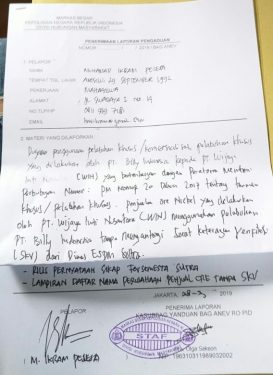 MARKAS BESAR
KEPOLISIAN NEGARA REPUBLIK INDONESIA
DIVISI HUBUNGAN MASYARAKAT
PENERIMAAN LAPORAN PENGADUAN
NOMOR : / 2019 / BAG ANEV
1. PELAPOR
NAMA : MUHAMAD IKRAM PELESA
TEMPAT / TGL. LAHIR : 29 SEPTEMBER 1992
PEKERJAAN : MAHASISWA
ALAMAT : JL. No 19
NO. TLP/HP :
EMAIL :
2. MATERI YANG DILAPORKAN
Dugaan penggunaan pelabuhan khusus / pelabuhan khusus
yang dilakukan oleh PT. Billy Indonesia kepada PT. Wijaya
Inti (WIN) yang bertentangan dengan Peraturan Menteri
Perhubungan Nomor : PM nomor 20 Tahun 2017 tentang
khusus / Pelabuhan khusus. Penjualan ore Nickel yang dilakukan
oleh PT. Wijaya Inti Nusantara (WIN) menggunakan Pelabuhan
PT. Billy Indonesia tanpa mengantongi Surat Keterangan
(SKV) dari Dinas ESDM Sultra.
- RILIS PERNYATAAN SIKAP SULTRA
- LAMPIRAN DAFTAR NAMA PERUSAHAAN PENJUAL ORE TANPA SKV
JAKARTA, 2019
PELAPOR
KASUBBAG YANDUAN BAG ANEV RO PID
STAF
M. IKRAM PELESA
Olga Sakeon
196310311989032002